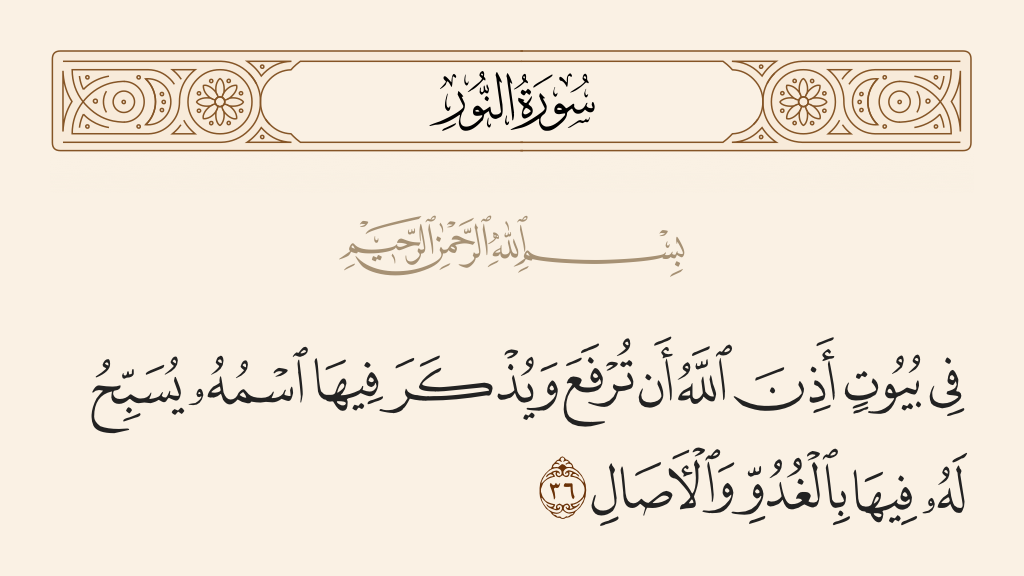 سُورَةُ النُّورِ
بِسْمِ ٱللَّهِ ٱلرَّحْمَٰنِ ٱلرَّحِيمِ
فِى بُيُوتٍ أَذِنَ ٱللَّهُ أَن تُرْفَعَ وَيُذْكَرَ فِيهَا ٱسْمُهُۥ يُسَبِّحُ
لَهُۥ فِيهَا بِٱلْغُدُوِّ وَٱلْـَٔاصَالِ ٣٦